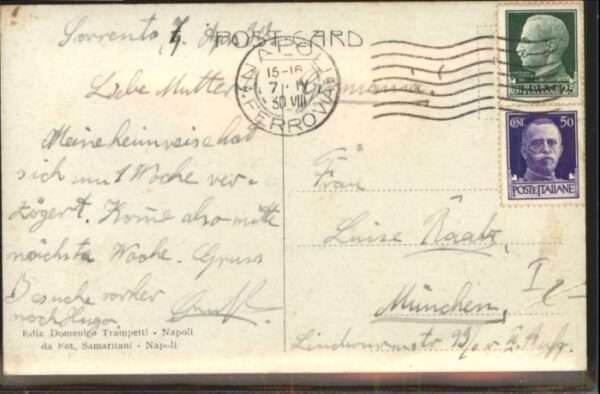 POST CARD
Sorrento 7. Apr.
Liebe Mutter
Germania
NAPOLI
15-16
7 IV
30 VIII
FERROVIA
POSTE ITALIANE
CENT 50
POSTE ITALIANE
Meine heimreise hat
sich um 1 Woche ver-
zögert. Kome also mitte
nächste Woche. Gruss
Besuche vorher
noch Hugo
Frau
Luise Raab,
München,
Lindwurmstr
Ediz Domenico Trampetti - Napoli
da Fot. Samaritani - Napoli